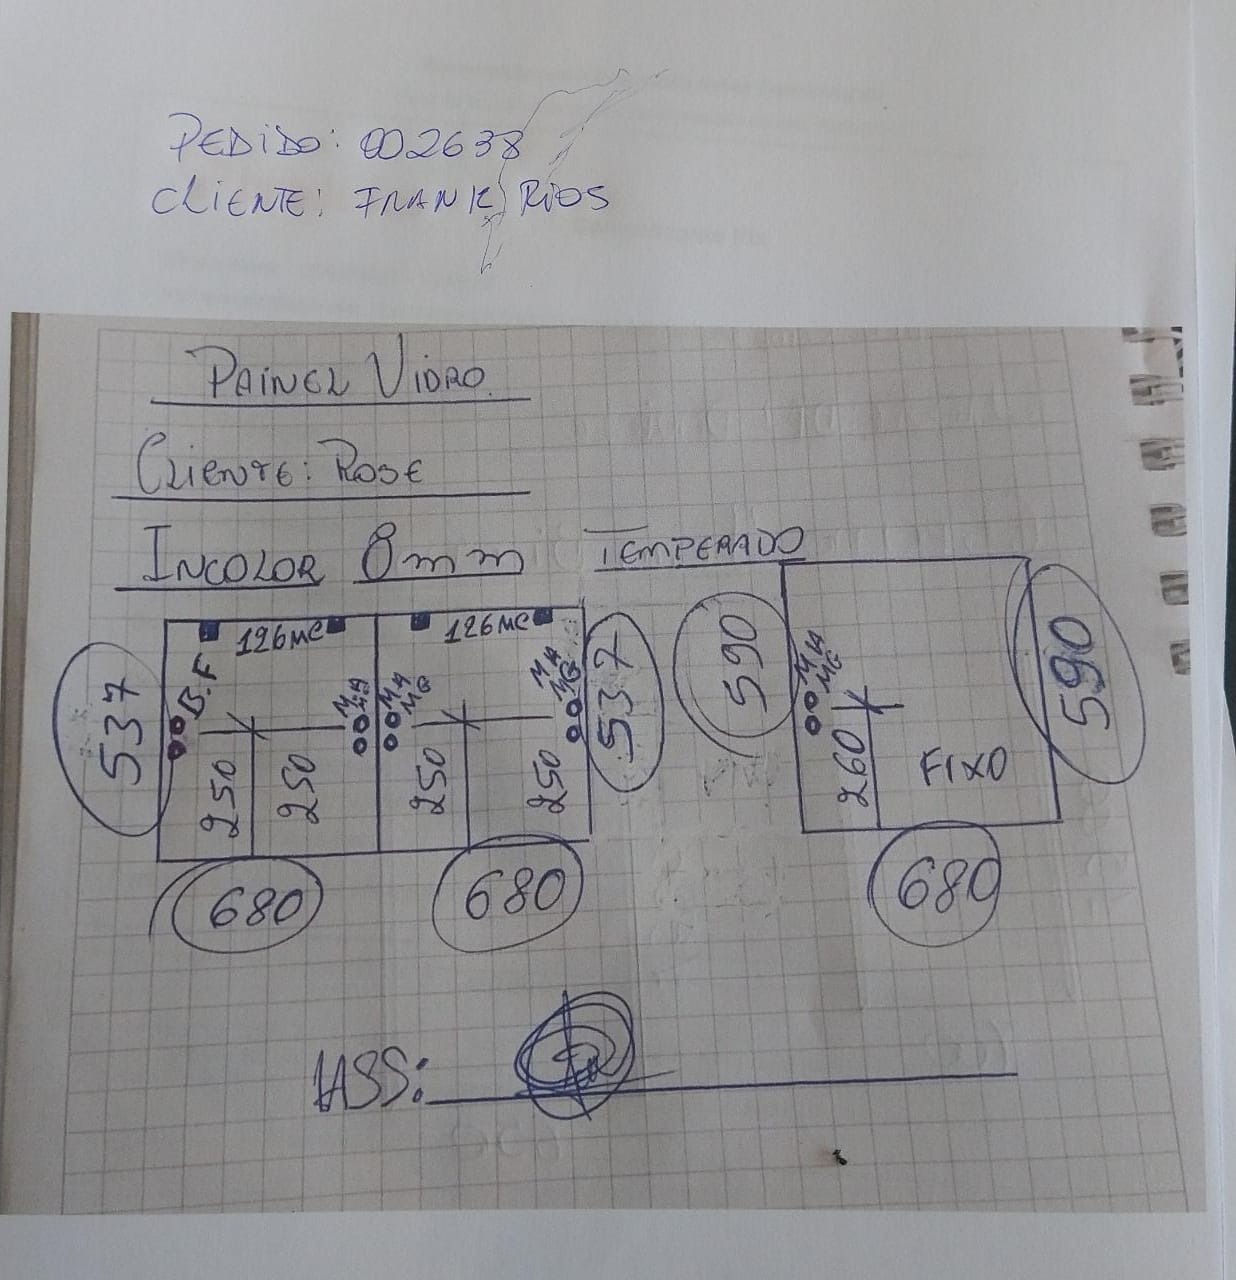 PEDIDO: 002638
CLIENTE: FRANK RIOS
PAINEL VIDRO
CLIENTE: ROSE
INCOLOR 8mm TEMPERADO
126MC 126MC
B.F MA MA MG MA MG MA MG
537 537 590 590
250 250 250 250 260 FIXO
680 680 680
ASS: